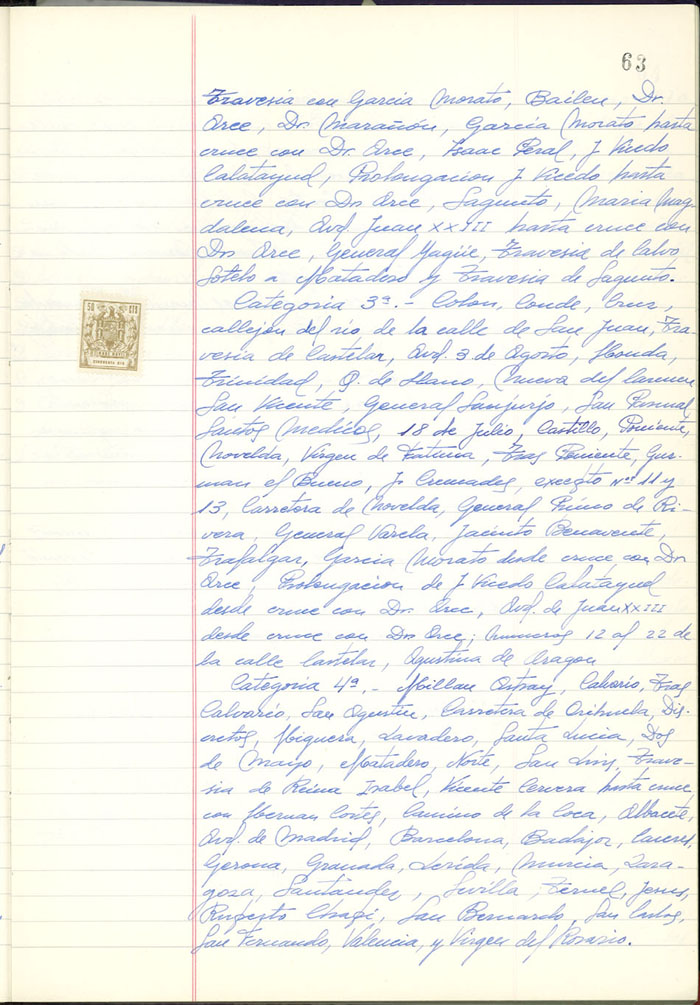 63
Travesia con Garcia Morato, Bailen, Dr.
Arce, Dr. Marañón, Garcia Morato hasta
cruce con Dr. Arce, Isaac Peral, J. Vicedo
Calatayud, Prolongacion J. Vicedo hasta
cruce con Dr. Arce, Sagunto, Maria Mag
dalena, Avd. Juan XXIII hasta cruce con
Dr. Arce, General Yagüe, Travesia de Calvo
Sotelo a Matadero y Travesia de Sagunto.
Categoria 3ª.- Colon, Conde, Cruz,
callejon del rio de la calle de San Juan, Tra-
vesia de Castelar, Avd. 3 de Agosto, Honda,
Trinidad, P. de Llano, Cueva del
San Vicente, General Sanjurjo, San Pascual
Santos Medicos, 18 de Julio, Castillo, Poniente,
Novelda, Virgen de Fatima, Tras Poniente, Guz-
man el Bueno, J. Cremades, excepto nos 11 y
13, Carretera de Novelda, General Primo de Ri-
vera, General Varela, Jacinto Benavente,
Trafalgar, Garcia Morato desde cruce con Dr.
Arce, Prolongacion de J. Vicedo Calatayud
desde cruce con Dr. Arce, Avd. de Juan XXIII
desde cruce con Dr. Arce; numeros 12 al 22 de
la calle Castelar, Agustina de Aragon
Categoria 4ª.- Millan Astray, Calvario, Tras
Calvario, San Agustin, Carretera de Orihuela, Dis-
cretos, Higuera, Lavadero, Santa Lucia, Dos
de Mayo, Matadero, Norte, San Luis, Trave-
sia de Reina Isabel, Vicente Cervera hasta cruce
con Hernan Cortes, Camino de la Coca, Albacete,
Avd. de Madrid, Barcelona, Badajoz, Caceres,
Gerona, Granada, Lerida, Murcia, Zara-
goza, Santander, Sevilla, Teruel, Jesus,
Ruperto Chapi, San Bernardo, San Carlos,
San Fernando, Valencia, y Virgen del Rosario.
50 CTS